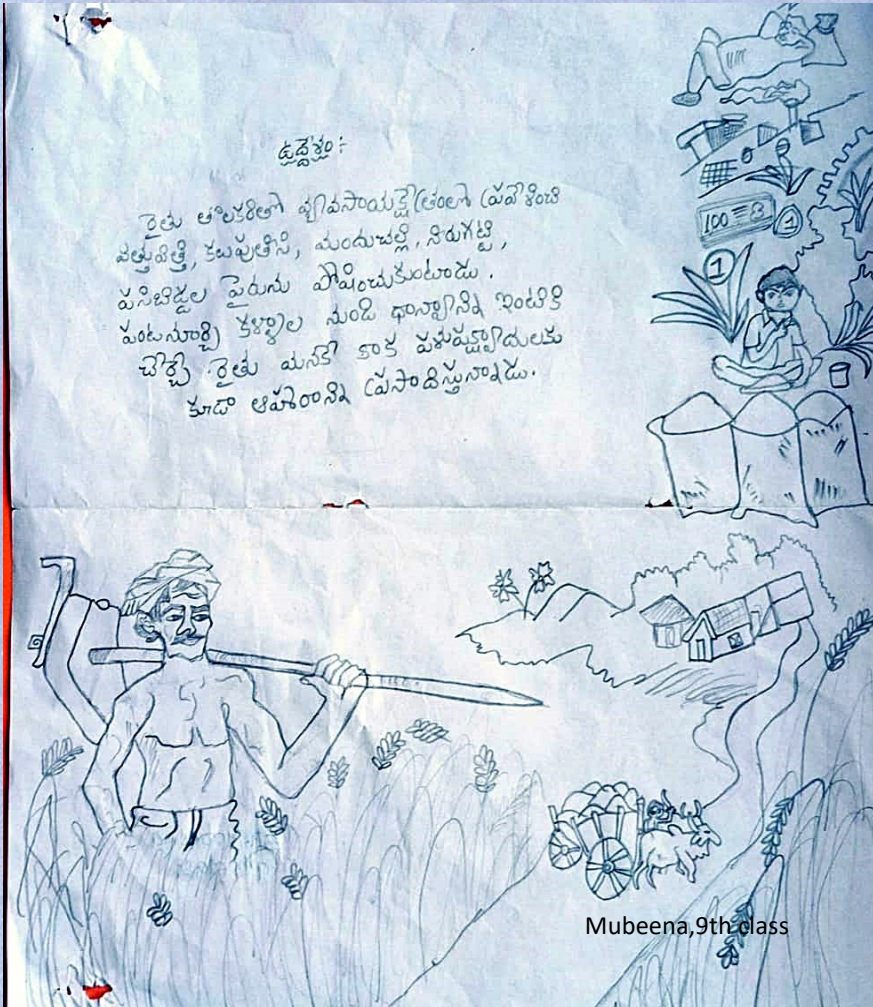 ఉద్దేశ్యం :
రైతు తొలకరితో వ్యవసాయక్షేత్రంలో ప్రవేశించి
విత్తువిత్తి, కలుపుతీసి, మందుచల్లి, నీరుగట్టి,
పసిబిడ్డల పైరును పోషించుకుంటాడు.
పంటనూర్చి కళ్ళాల నుండి ధాన్యాన్ని ఇంటికి
చేర్చే రైతు మనకే కాక పశుపక్ష్యాదులకు
కూడా ఆహారాన్ని ప్రసాదిస్తున్నాడు.
100
1
1
Mubeena,9th class